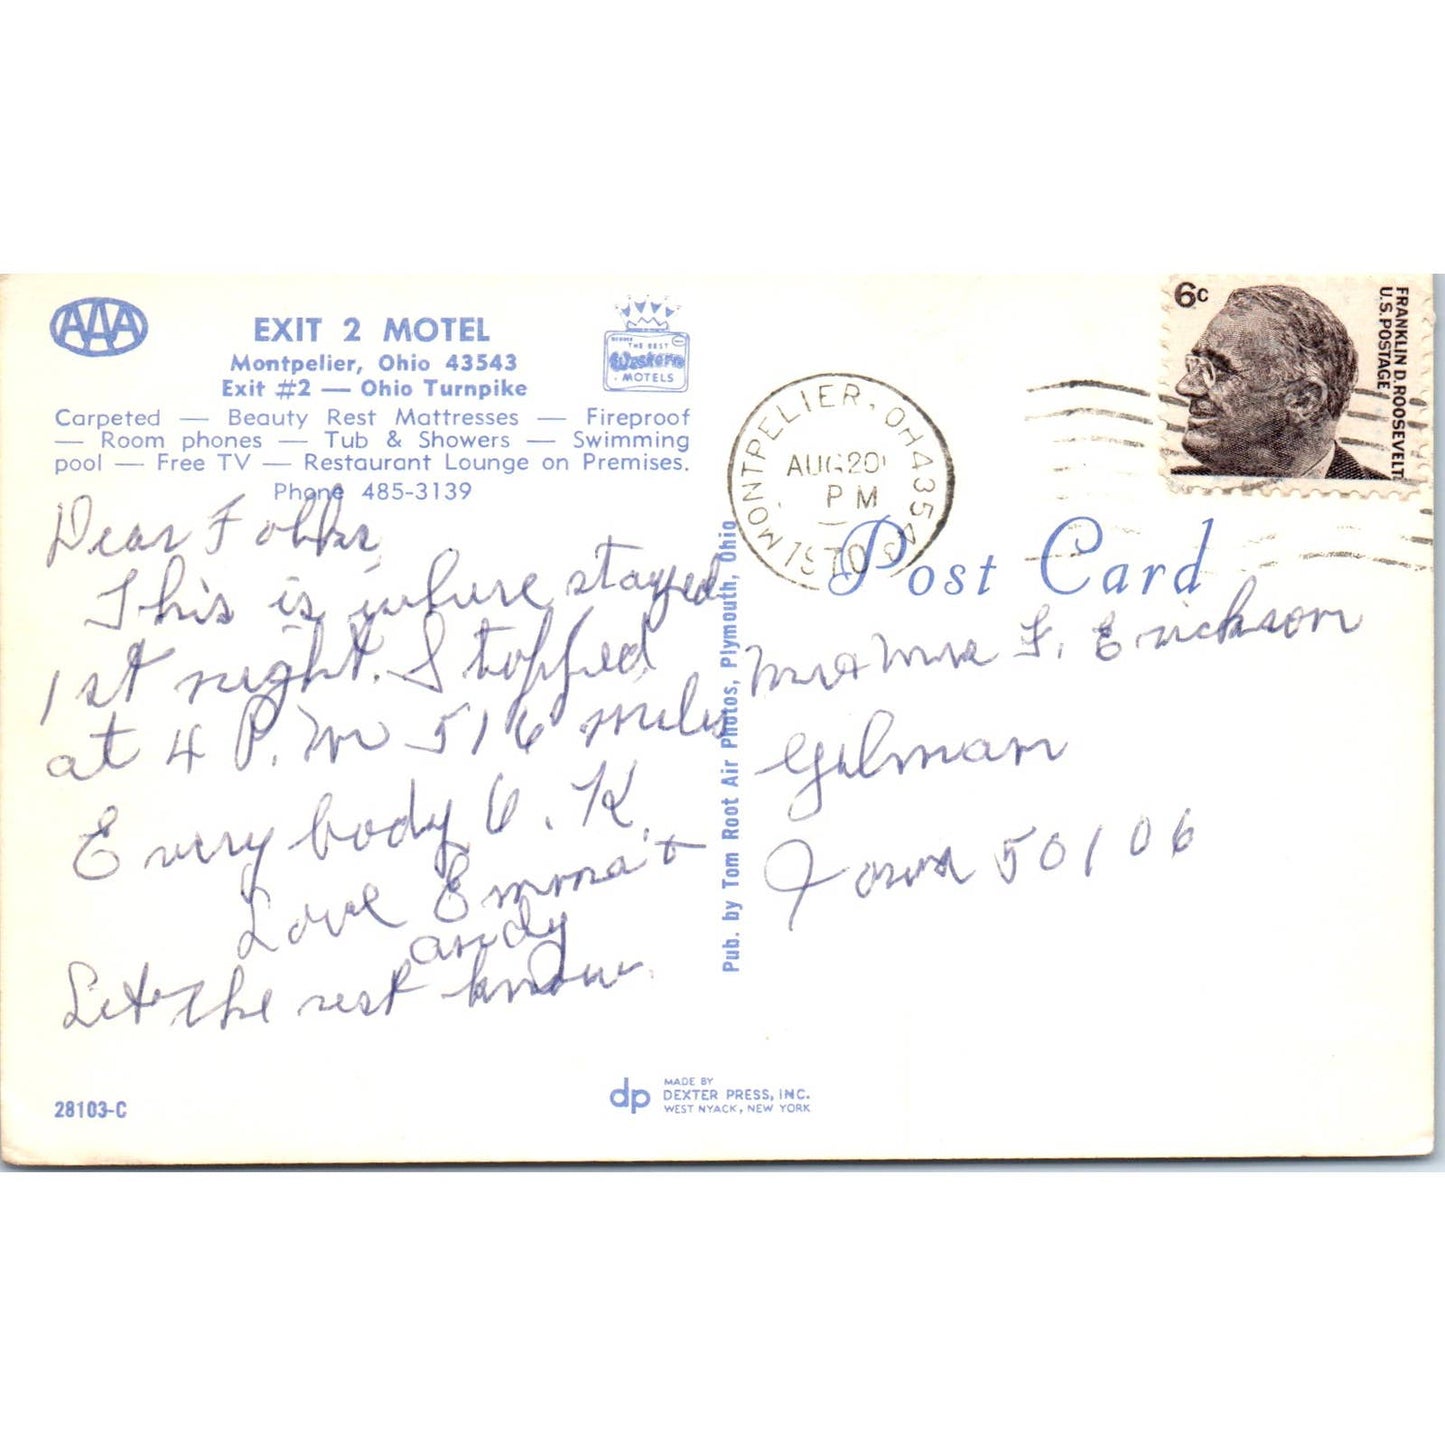 AAA
EXIT 2 MOTEL
Montpelier, Ohio 43543
Exit #2 — Ohio Turnpike
THE BEST
Western
MOTELS
Carpeted — Beauty Rest Mattresses — Fireproof
— Room phones — Tub & Showers — Swimming
pool — Free TV — Restaurant Lounge on Premises.
Phone 485-3139
Dear Folks,
This is where stayed
1st night. Stopped
at 4 P.M 516 miles
Everybody O.K.
Love Emma +
andy
Let the rest know.
28103-C
Pub. by Tom Root Air Photos, Plymouth, Ohio
dp
MADE BY
DEXTER PRESS, INC.
WEST NYACK, NEW YORK
MONTPELIER, OH 43543
AUG 20
PM
1970
6c
FRANKLIN D. ROOSEVELT
U.S. POSTAGE
Post Card
Mr & Mrs F. Erickson
Gilman
Iowa 50106